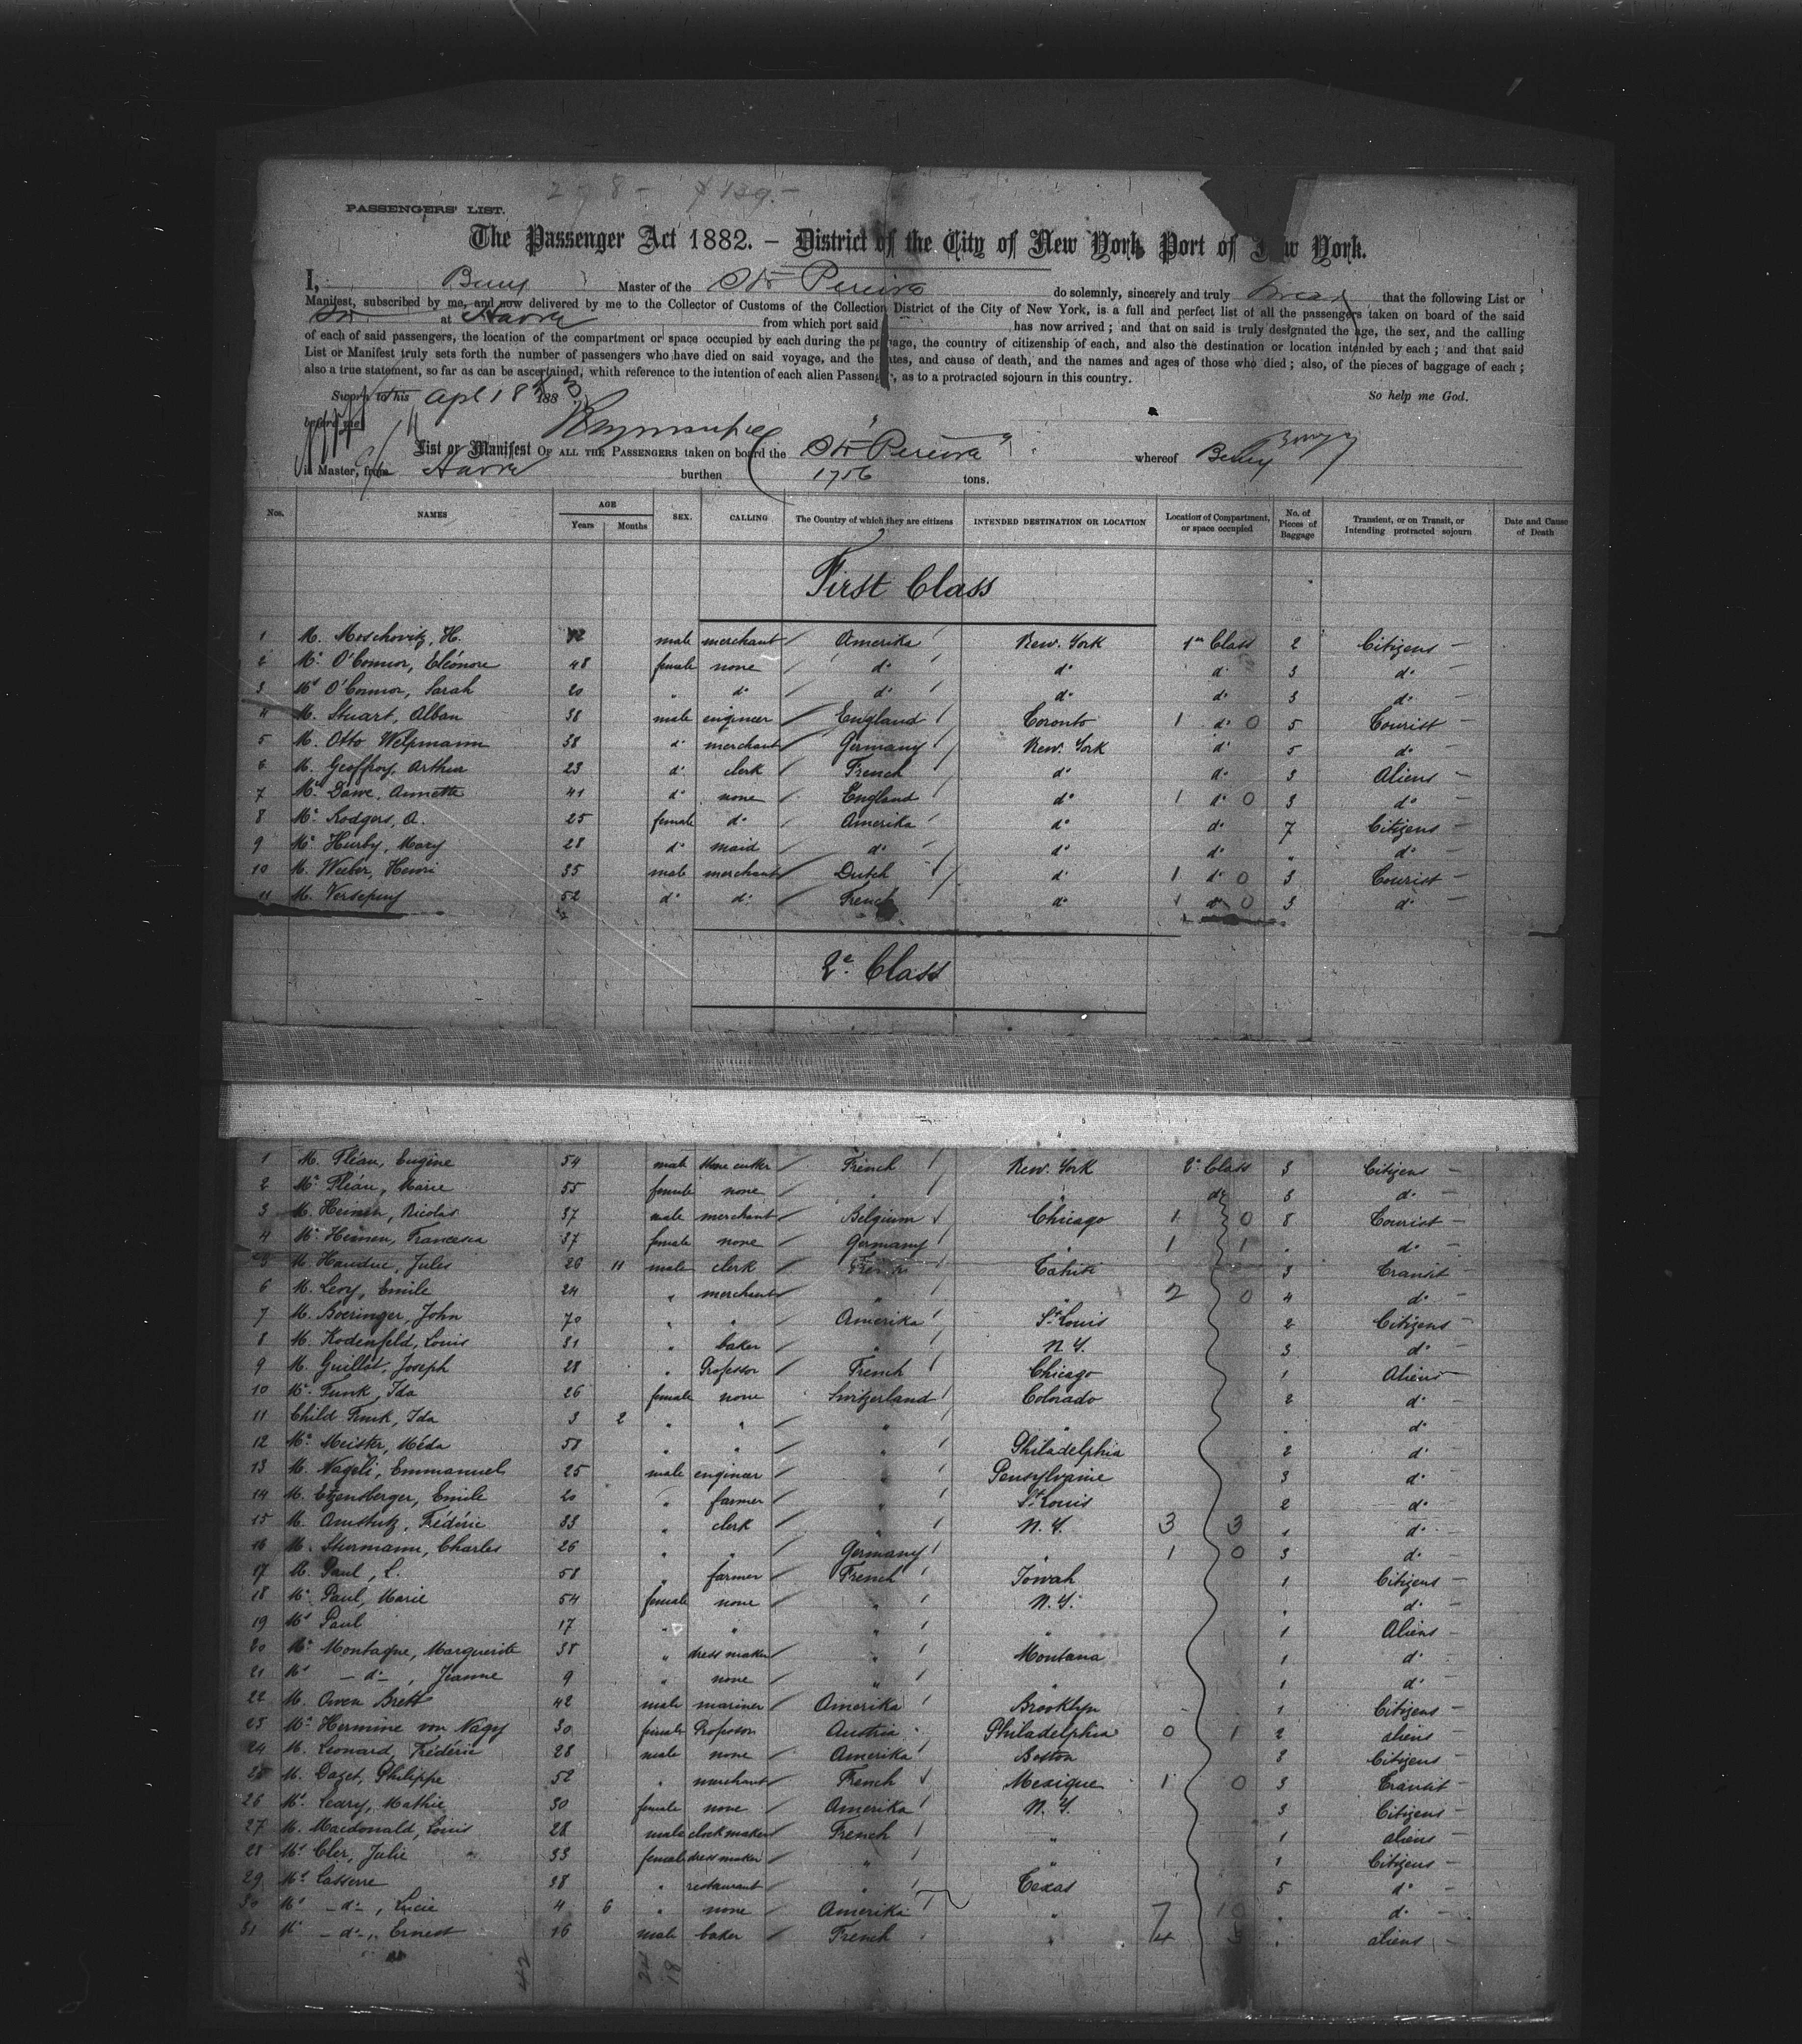 278 - $139.-
PASSENGERS' LIST.
The Passenger Act 1882. — District of the City of New York Port of New York.
I, Master of the Str Pereire do solemnly, sincerely and truly swear that the following List or
Manifest, subscribed by me, and now delivered by me to the Collector of Customs of the Collection District of the City of New York, is a full and perfect list of all the passengers taken on board of the said
Str at Havre from which port said has now arrived; and that on said is truly designated the age, the sex, and the calling
of each of said passengers, the location of the compartment or space occupied by each during the passage, the country of citizenship of each, and also the destination or location intended by each; and that said
List or Manifest truly sets forth the number of passengers who have died on said voyage, and the dates, and cause of death, and the names and ages of those who died; also, of the pieces of baggage of each;
also a true statement, so far as can be ascertained, whith reference to the intention of each alien Passenger, as to a protracted sojourn in this country.
Sworn to this Apl 18 1883 So help me God.
before me
List or Manifest OF ALL THE PASSENGERS taken on board the Str Pereire whereof
is Master, from Havre burthen 1756 tons.
Nos. NAMES AGE Years Months SEX. CALLING The Country of which they are citizens INTENDED DESTINATION OR LOCATION Location of Compartment, or space occupied No. of Pieces of Baggage Transient, or on Transit, or Intending protracted sojourn Date and Cause of Death
First Class
1 M. Moschovitz, H. 42 male merchant Amerika New. York 1re Class 2 Citizens
2 Me O'Connor, Eléonore 48 female none do do do 3 do
3 Mle O'Connor, Sarah 20 " do do do do 3 do
4 M. Stuart, Alban 38 male engineer England Toronto 1 do 0 5 Tourist
5 M. Otto Welpmann 38 do merchant Germany New. York do 5 do
6 M. Geoffroy, Arthur 23 do clerk French do do 3 Aliens
7 Me Dawe, Annette 41 do none England do 1 do 0 3 do
8 Me Rodgers, A. 25 female do Amerika do do 7 Citizens
9 Me Hurby, Mary 28 do maid do do do " do
10 M. Weeber, Henri 35 male merchant Dutch do 1 do 0 3 Tourist
11 M. Versepuy 52 do do French do 1 do 0 3 do
2e Class
1 M. Fléau, Eugène 54 male stone cutter French New. York 2e Class 3 Citizens
2 Me Fléau, Marie 55 female none " " do 3 do
3 M. Heinen, Nicolas 37 male merchant Belgium Chicago 1 0 8 Tourist
4 Me Heinen, Francesca 37 female none Germany " 1 1 . do
5 M. Hauduc, Jules 26 11 male clerk French Tahiti 3 Transit
6 M. Levy, Emile 24 " merchant " " 2 0 4 do
7 M. Boeringer, John 70 " " Amerika St Louis 2 Citizens
8 M. Rodenfeld, Louis 31 " baker " N. Y. 3 do
9 M. Guillot, Joseph 28 " Professor French Chicago 1 Aliens
10 Me Funk, Ida 26 female none Switzerland Colorado 2 do
11 Child Funk, Ida 3 2 " " " " . do
12 Me Meister, Méda 58 " " " Philadelphia 2 do
13 M. Nageli, Emmanuel 25 male engineer " Pensylvanie 3 do
14 M. Etzensberger, Emile 20 " farmer " St Louis 2 do
15 M. Amstutz, Frédéric 33 " clerk " N. Y. 3 3 1 do
16 M. Sturmann, Charles 26 " " Germany " 1 0 3 do
17 M. Paul, L. 58 " farmer French Iowah 1 Citizens
18 Me Paul, Marie 54 female none " N. Y. . do
19 Mle Paul 17 " " " " 1 Aliens
20 Me Montague, Marguerite 38 " dress maker " Montana 1 do
21 Mle - do -, Jeanne 9 " none " " 1 do
22 M. Owen Brett 42 male mariner Amerika Brooklyn 1 Citizens
23 Me Hermine von Nagy 30 female Professor Austria Philadelphia 0 1 2 aliens
24 M. Leonard, Frédéric 28 male none Amerika Boston 3 Citizens
25 M. Dazet, Philippe 52 " merchant French Mexique 1 0 3 Transit
26 Me Leary, Mathie 30 female none Amerika N. Y. 3 Citizens
27 M. Macdonald, Louis 28 male clock maker French " 1 aliens
28 Me Cler, Julie 33 female dress maker " " 1 Citizens
29 Me Casserre 38 " restaurant " Texas 5 do
30 Mle - do -, Lucie 4 6 " none Amerika " 7 10 . do
31 M. - do -, Ernest 16 male baker French " 4 3 . aliens
42 24 18